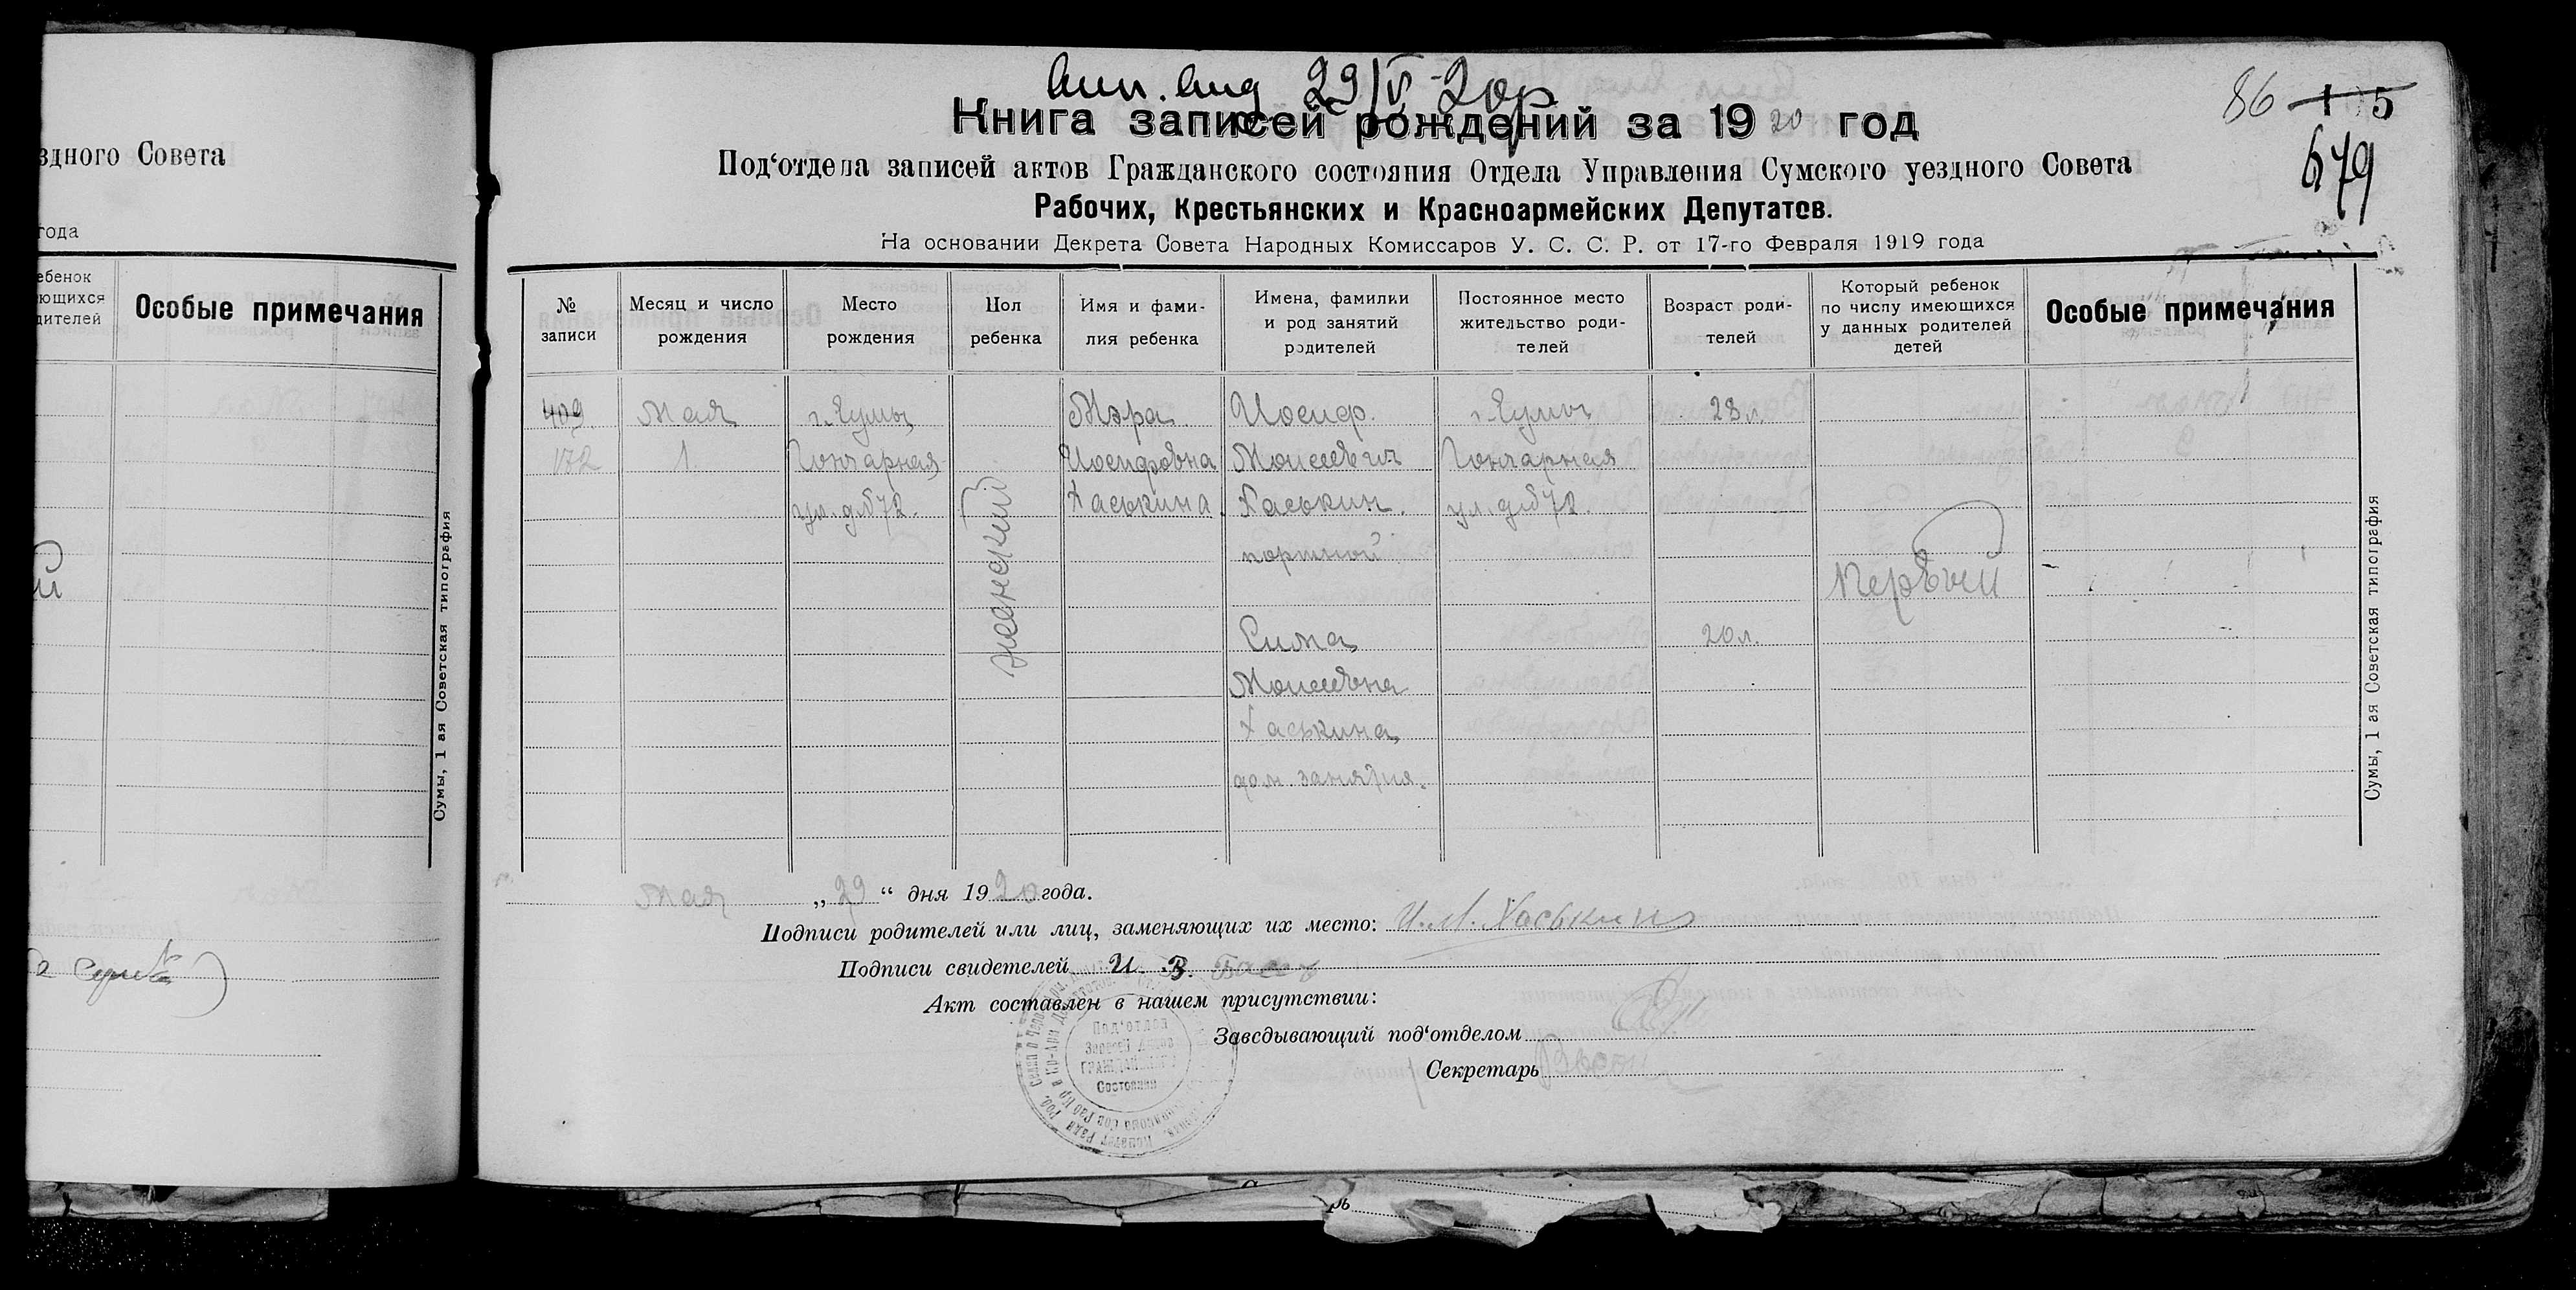 здного Совета
года
ебенок
ющихся
дителей
Особые примечания
й
Сумы, 1 ая Советская типография
29/V-20р
86 1 5
679
Книга записей рождений за 1920 год
Под‘отдела записей актов Гражданского состояния Отдела Управления Сумского уездного Совета
Рабочих, Крестьянских и Красноармейских Депутатов.
На основании Декрета Совета Народных Комиссаров У. С. С. Р. от 17-го Февраля 1919 года
№
записи
Месяц и число
рождения
Место
рождения
Пол
ребенка
Имя и фами-
лия ребенка
Имена, фамилии
и род занятий
родителей
Постоянное место
жительство роди-
телей
Возраст роди-
телей
Который ребенок
по числу имеющихся
у данных родителей
детей
Особые примечания
409
172
Мая
1
г. Сумы
Гончарная
ул. д №72.
женский
Мэра
Иосифовна
Хаськина.
Иосиф.
Моисеевич
Хаськин.
портной
Сима
Моисеевна
Хаськина
дом. занятия.
г. Сумы
Гончарная
ул. д №72.
28 л.
20 л.
Первый
Сумы, 1 ая Советская типография
Мая „29“ дня 1920 года.
Подписи родителей или лиц, заменяющих их место: И. М. Хаськин
Подписи свидетелей И. В.
Акт составлен в нашем присутствии:
Заведывающий под‘отделом
Секретарь
Под‘отдел
Записей Актов
Гражданского
Состояния